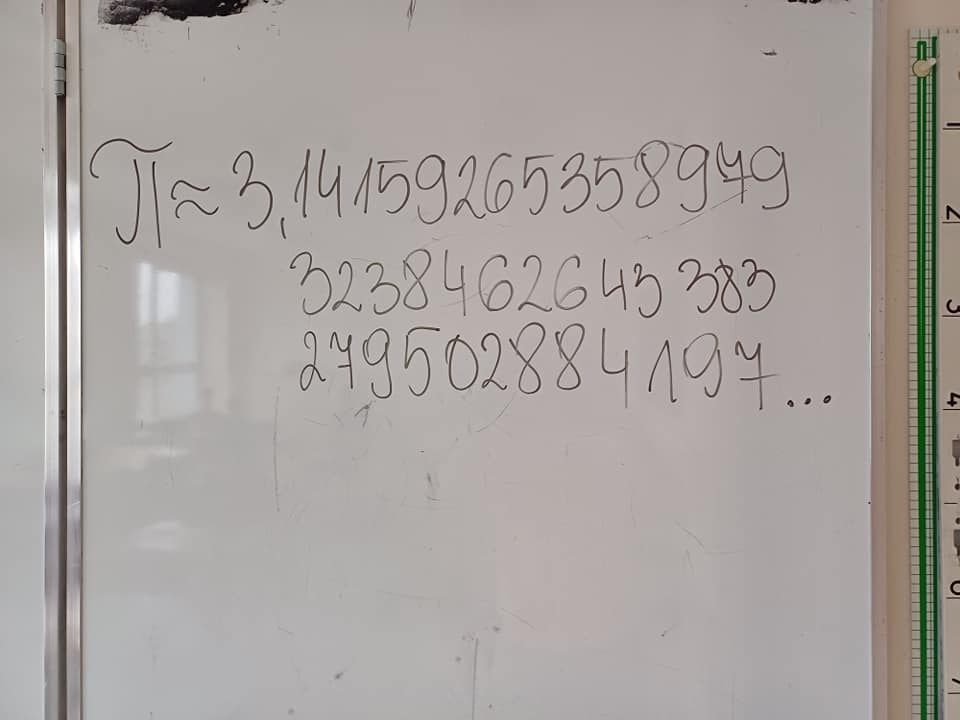 π≈3,14159265358979
3238462643383
279502884197...
1
2
3
4
6
7